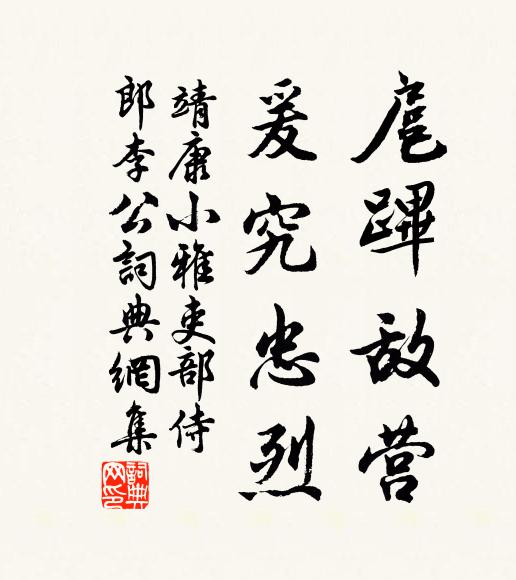 扈蹕敌营
爰究忠烈
靖康小雅吏部侍
郎李公詞典網集
詞典网印